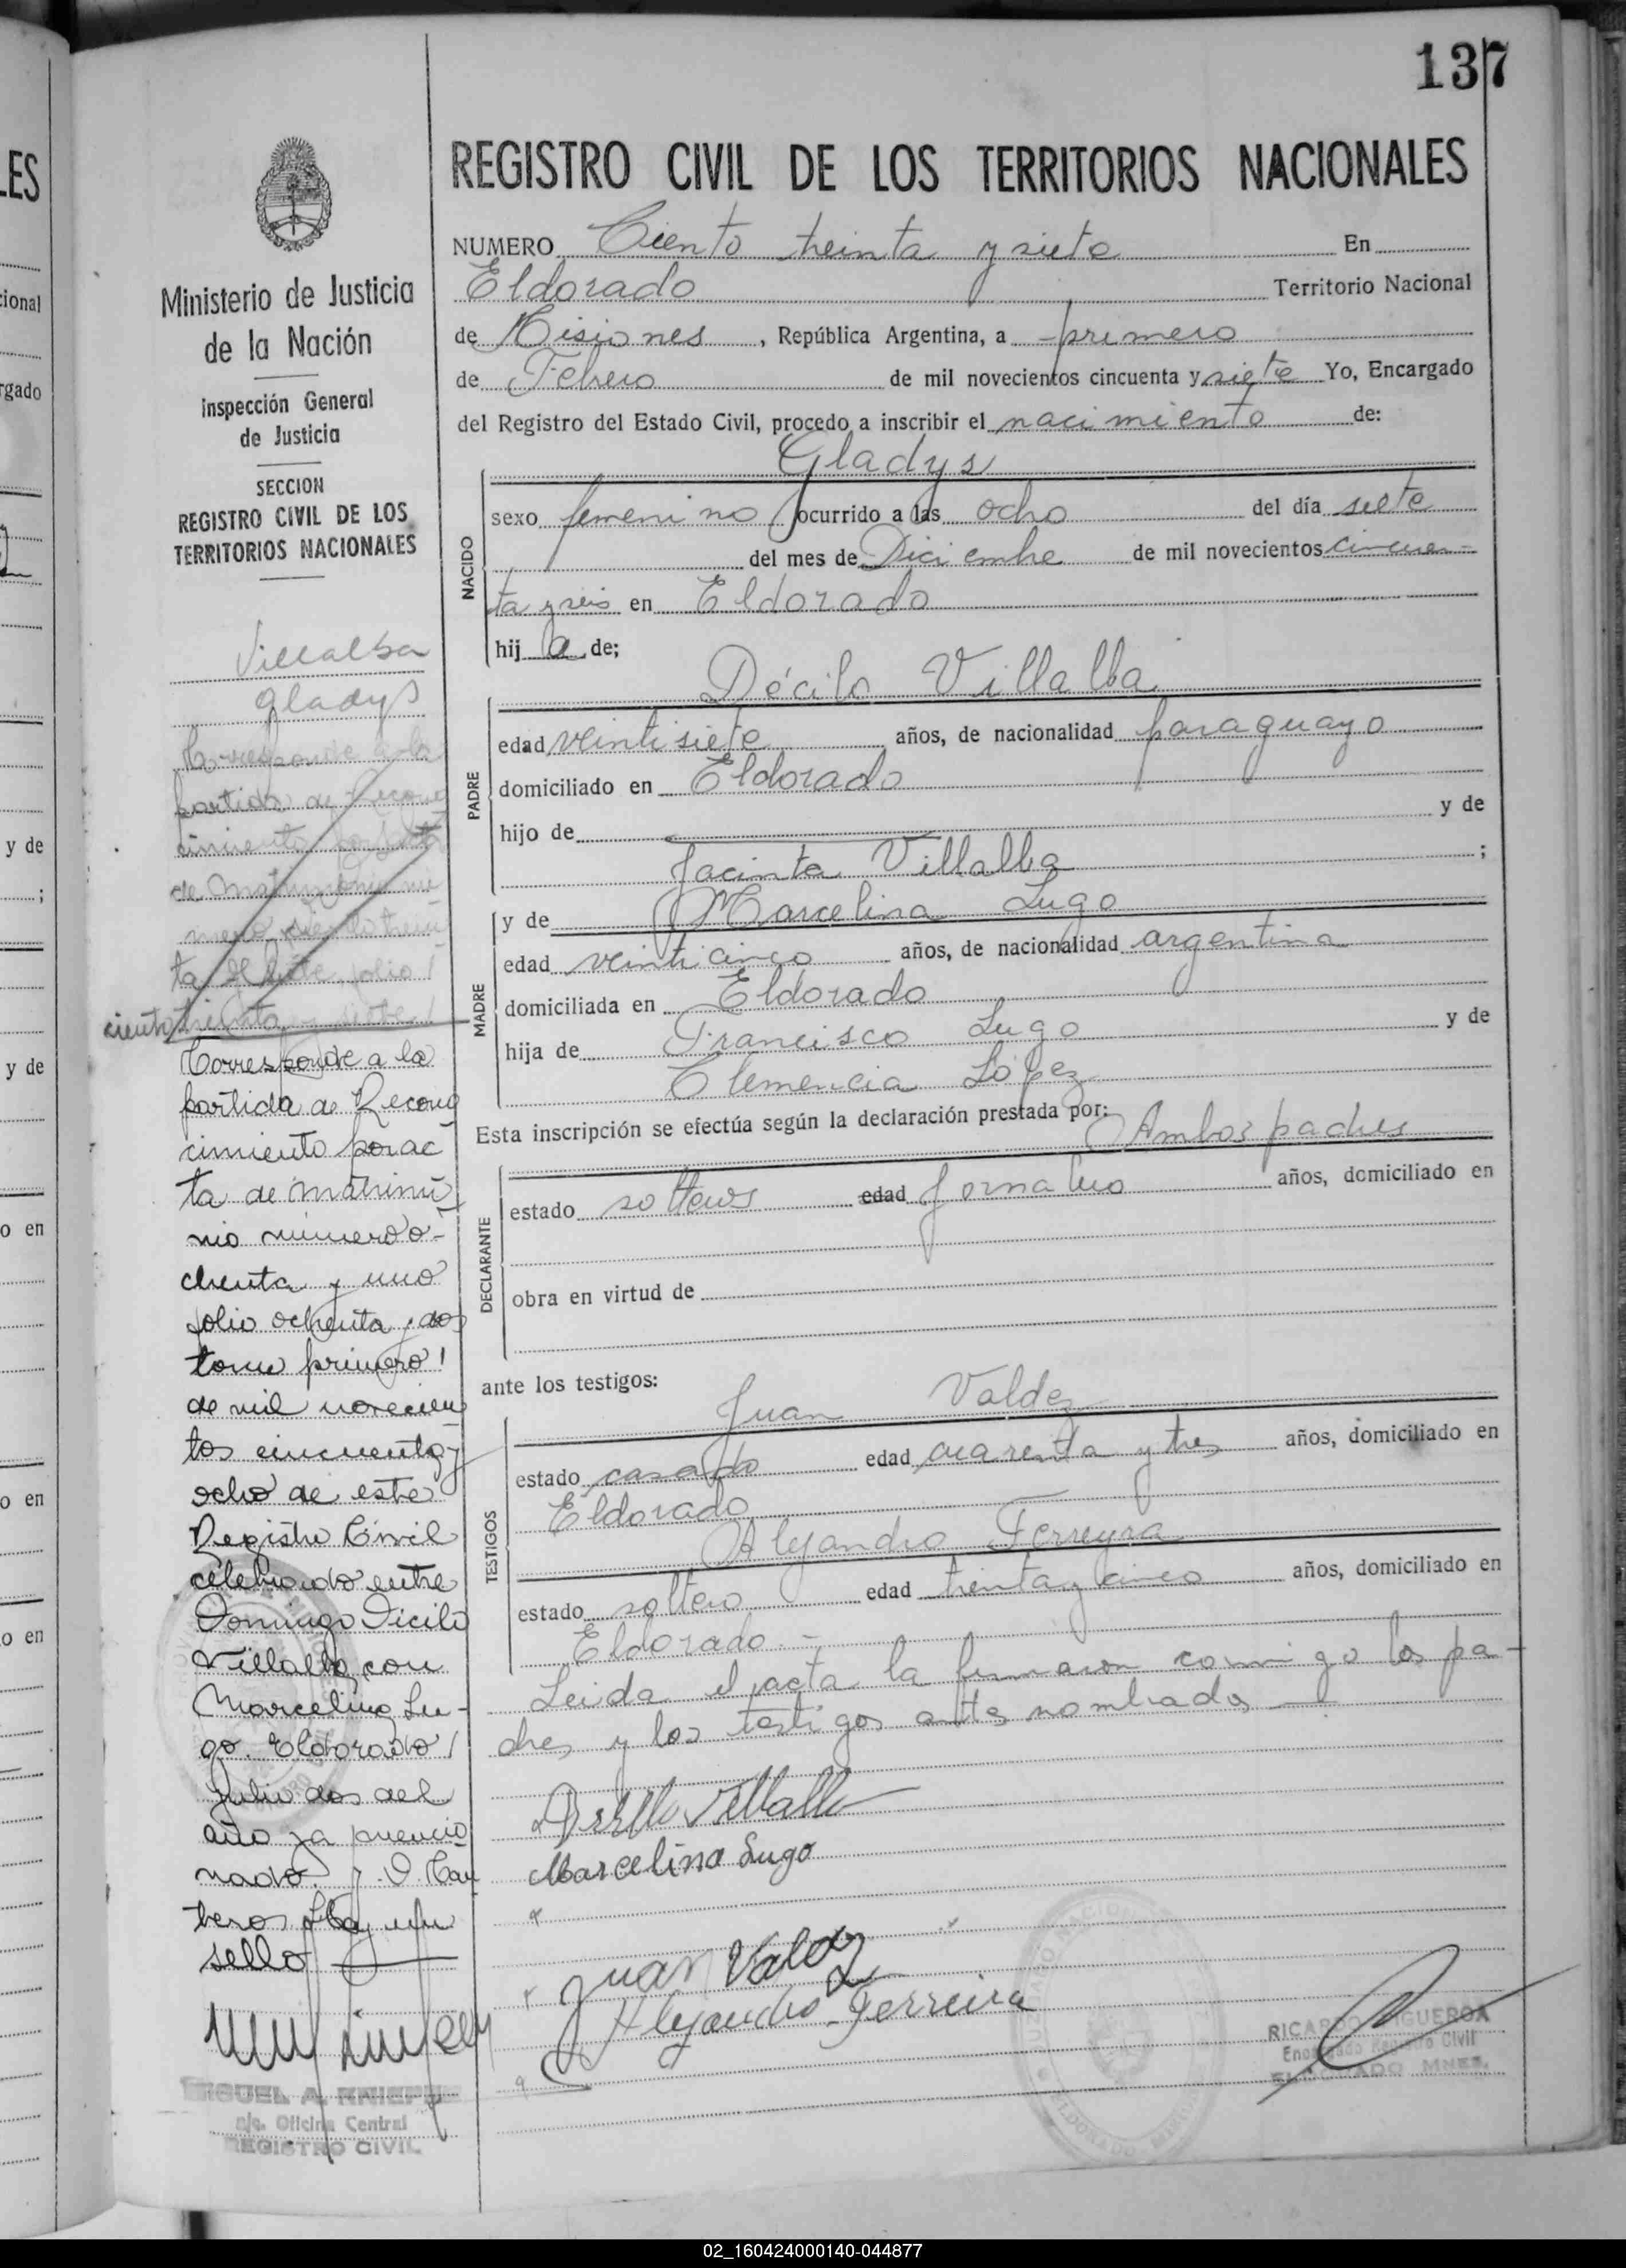 137
REGISTRO CIVIL DE LOS TERRITORIOS NACIONALES
NUMERO Ciento treinta y siete En
Eldorado Territorio Nacional
de Misiones, República Argentina, a primero
de Febrero de mil novecientos cincuenta y siete Yo, Encargado
del Registro del Estado Civil, procedo a inscribir el nacimiento de:
Gladys
NACIDO
sexo femenino ocurrido a las ocho del día siete
del mes de Diciembre de mil novecientos cincuen-
ta y seis en Eldorado
hija de;
Décilo Villalba
PADRE
edad veintisiete años, de nacionalidad paraguayo
domiciliado en Eldorado
hijo de y de
Jacinta Villalba ;
y de Marcelina Lugo
MADRE
edad veinticinco años, de nacionalidad argentina
domiciliada en Eldorado
hija de Francisco Lugo y de
Clemencia López
Esta inscripción se efectúa según la declaración prestada por: Ambos padres
DECLARANTE
estado solteros edad jornalero años, domiciliado en
obra en virtud de
ante los testigos:
Juan Valdez
TESTIGOS
estado casado edad cuarenta y tres años, domiciliado en
Eldorado
Alejandro Ferreyra
estado soltero edad treinta y cinco años, domiciliado en
Eldorado.-
Leida el acta la firmaron conmigo los pa-
dres y los testigos antes nombrados
Villalba
Marcelina Lugo
Juan Valdez
Alejandro Ferreira
RICARDO FIGUEROA
Encargado Registro Civil
ELDORADO MNES.
Ministerio de Justicia
de la Nación
Inspección General
de Justicia
SECCION
REGISTRO CIVIL DE LOS
TERRITORIOS NACIONALES
Villalba
Gladys
Corresponde a la
partida de Recono
cimiento por acta
de Matrimonio nu
mero ciento trein
ta y siete folio
ciento treinta y siete
Corresponde a la
partida de Recono
cimiento por ac
ta de matrimo
nio número o-
chenta y uno
folio ochenta y dos
tomo primero
de mil novecien
tos cincuenta y
ocho de este
Registro Civil
celebrado entre
Domingo Dicilo
Villalba con
Marcelina Lu-
go. Eldorado
Julio dos del
año ya mencio
nado.
Hay un
sello
MIGUEL A.
a/c. Oficina Central
REGISTRO CIVIL
ES
cional
rgado
y de
;
y de
o en
o en
o en
02_160424000140-044877